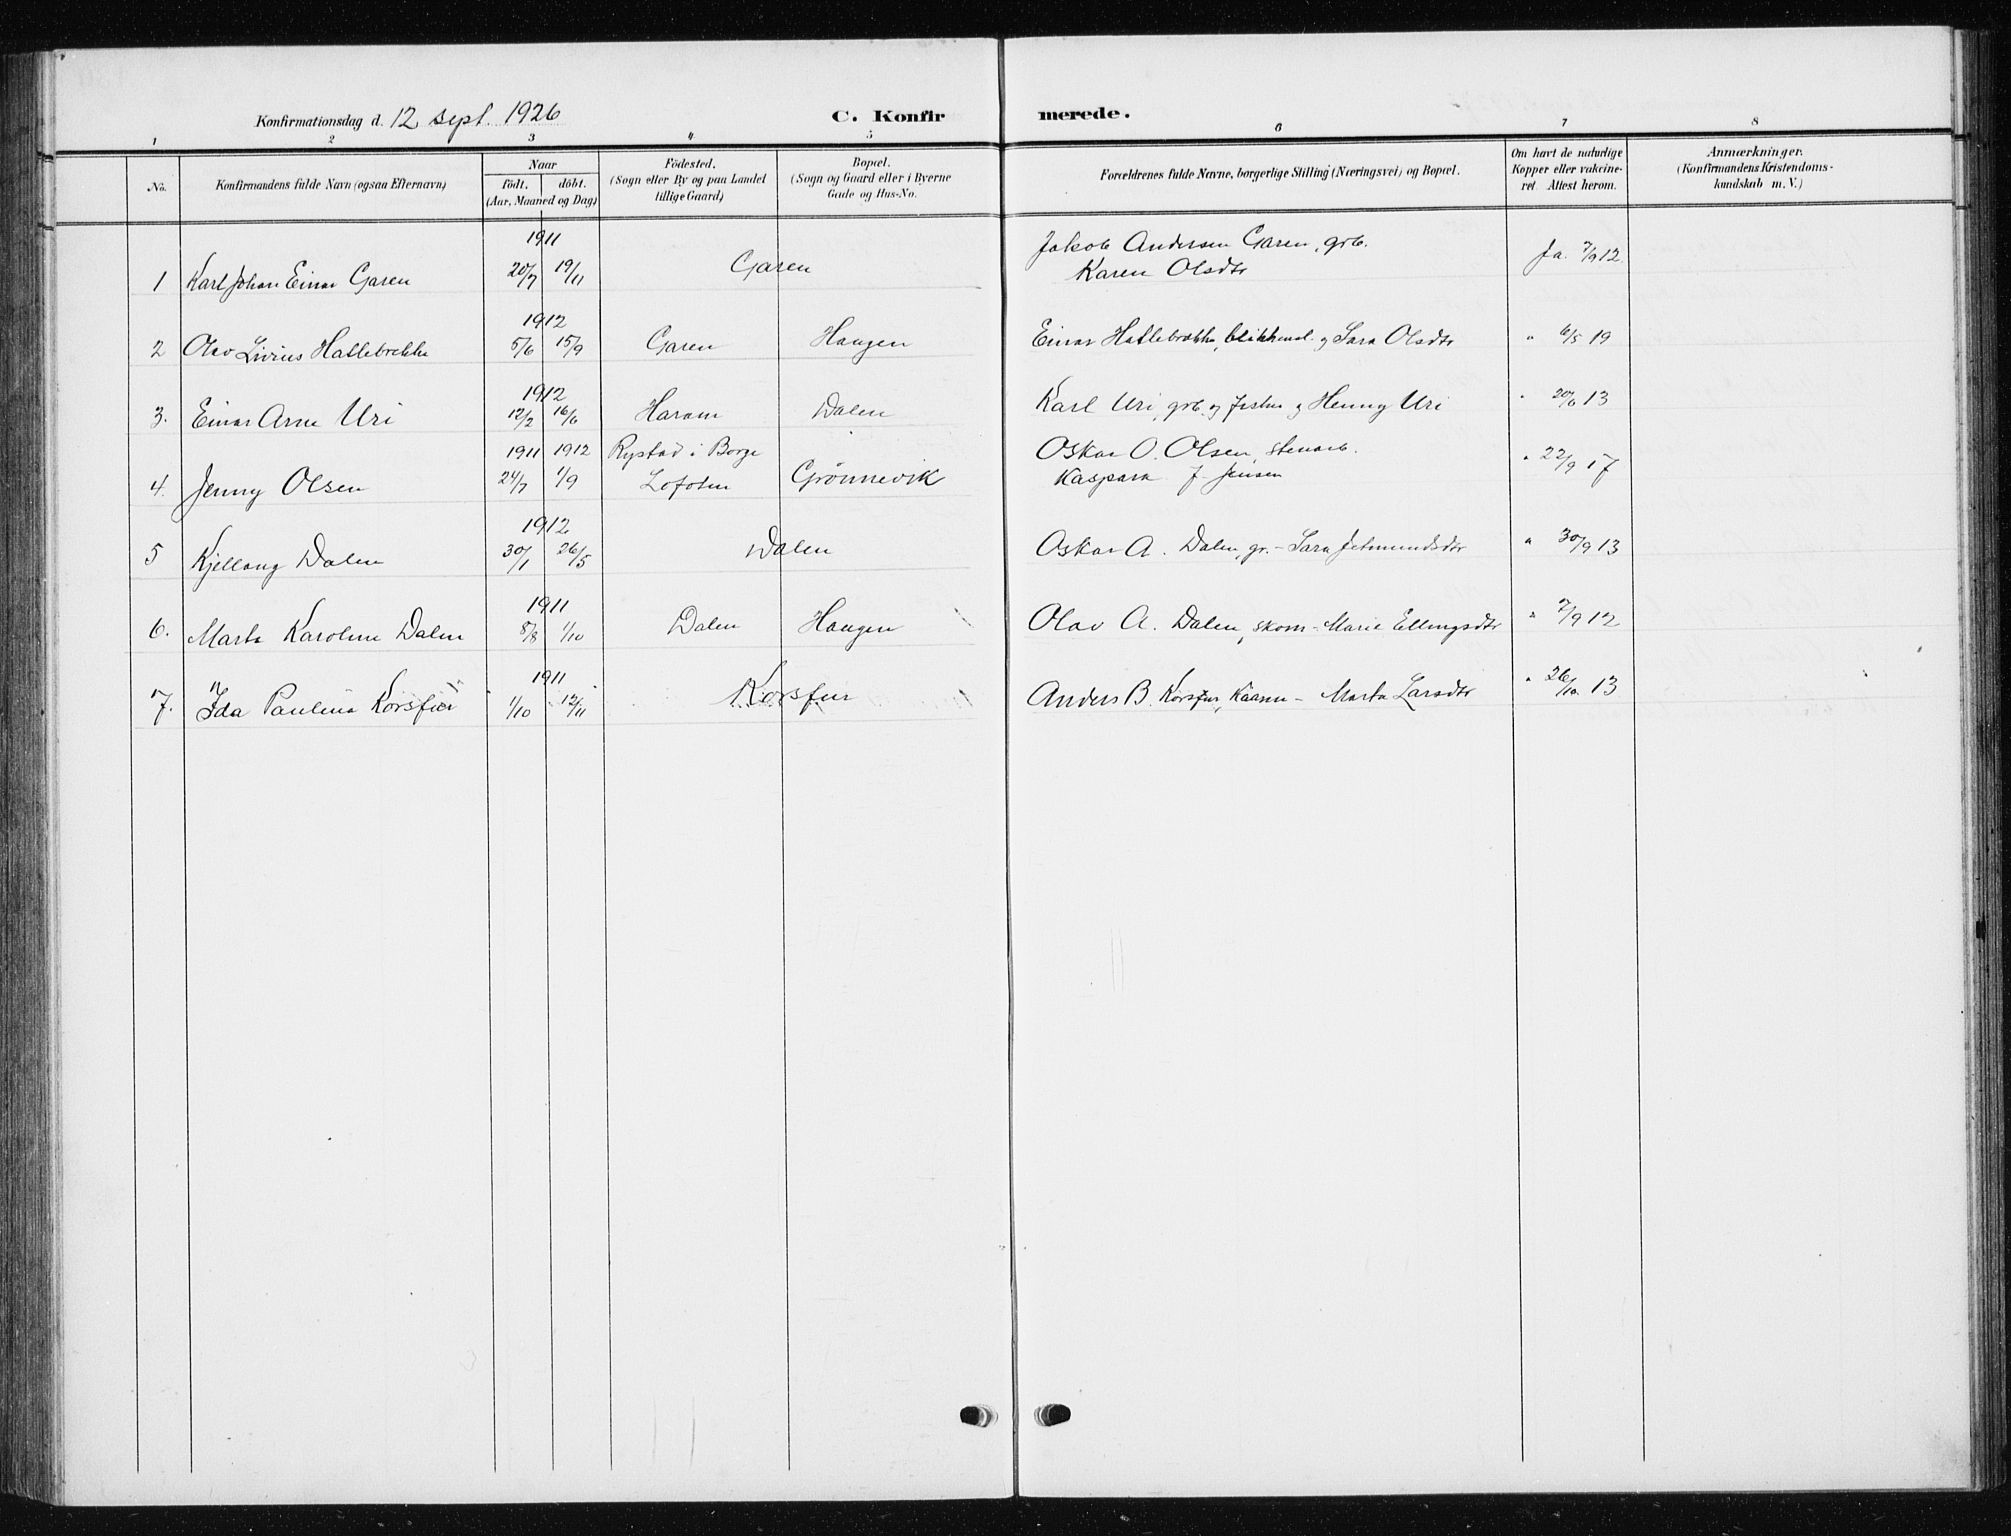 Konfirmationsdag d. 12 sept. 1926
C. Konfirmerede.
1 2 3 4 5 6 7 8
No. Konfirmandens fulde Navn (ogsaa Efternavn) Naar födt. döbt. (Aar, Maaned og Dag) Födested. (Sogn eller By og paa Landet tillige Gaard) Bopæl. (Sogn og Gaard eller i Byerne Gade og Hus-No. Forældrenes fulde Navne, borgerlige Stilling (Næringsvei) og Bopæl. Om havt de naturlige Kopper eller vakcineret. Attest herom. Anmærkninger. (Konfirmandens Kristendomskundskab m. V.)
1911 Jakob Andersen Garen, grb.
1 Karl Johan Einar Garen 20/7 19/11 Garen Karen Olsdtr Ja. 7/9 12
1912
2 Olav Livius Hallebrekke 5/6 15/9 Garen Haugen Einar Hallebrekke, blikkensl. og Sara Olsdtr " 6/5 19
1912
3. Einar Arne Uri 12/2 16/6 Haram Dalen Karl Uri, grb. og fisker og Henny Uri " 20/6 13
1911 1912 Rystad i Borge Oskar O. Olsen, stenarb.
4. Jenny Olsen 24/7 1/9 Lofoten Grönnevik Kaspara J. Jensen " 22/9 17
1912
5 Kjellaug Dalen 30/1 26/5 Dalen Oskar A. Dalen, gr. - Sara Jetmundsdtr " 30/9 13
1911
6. Marta Karoline Dalen 8/8 1/10 Dalen Haugen Olav A. Dalen, skom - Marie Ellingsdtr " 7/9 12
1911
7. Ida Paulina Korsfur 1/10 12/11 Korsfur Anders B. Korsfur, Kaarm - Marta Larsdtr " 26/10 13